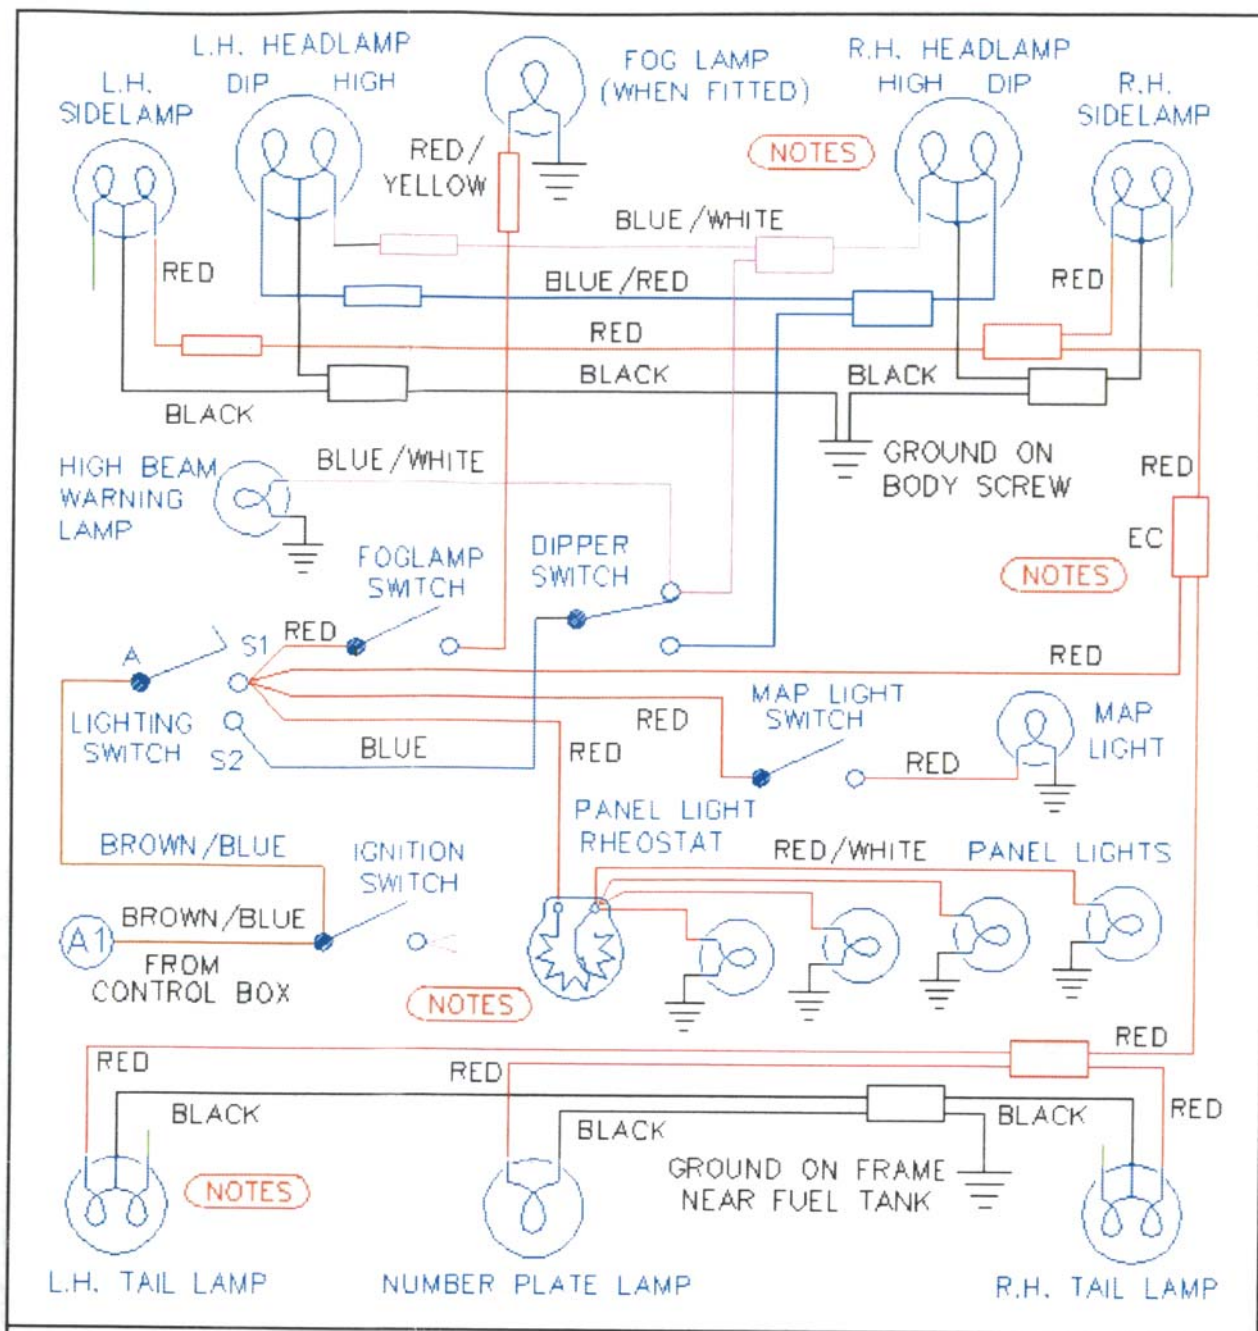 L.H. HEADLAMP
DIP HIGH
L.H.
SIDELAMP
FOG LAMP
(WHEN FITTED)
R.H. HEADLAMP
HIGH DIP
R.H.
SIDELAMP
RED/
YELLOW
NOTES
BLUE/WHITE
RED
BLUE/RED
RED
RED
BLACK
BLACK
BLACK
HIGH BEAM
WARNING
LAMP
BLUE/WHITE
GROUND ON
BODY SCREW
RED
EC
NOTES
FOGLAMP
SWITCH
DIPPER
SWITCH
A
S1
RED
RED
LIGHTING
SWITCH
S2
BLUE
RED
RED
MAP LIGHT
SWITCH
RED
MAP
LIGHT
PANEL LIGHT
RHEOSTAT
BROWN/BLUE
IGNITION
SWITCH
RED/WHITE
PANEL LIGHTS
A1
BROWN/BLUE
FROM
CONTROL BOX
NOTES
RED
RED
RED
BLACK
BLACK
BLACK
RED
NOTES
GROUND ON FRAME
NEAR FUEL TANK
L.H. TAIL LAMP
NUMBER PLATE LAMP
R.H. TAIL LAMP